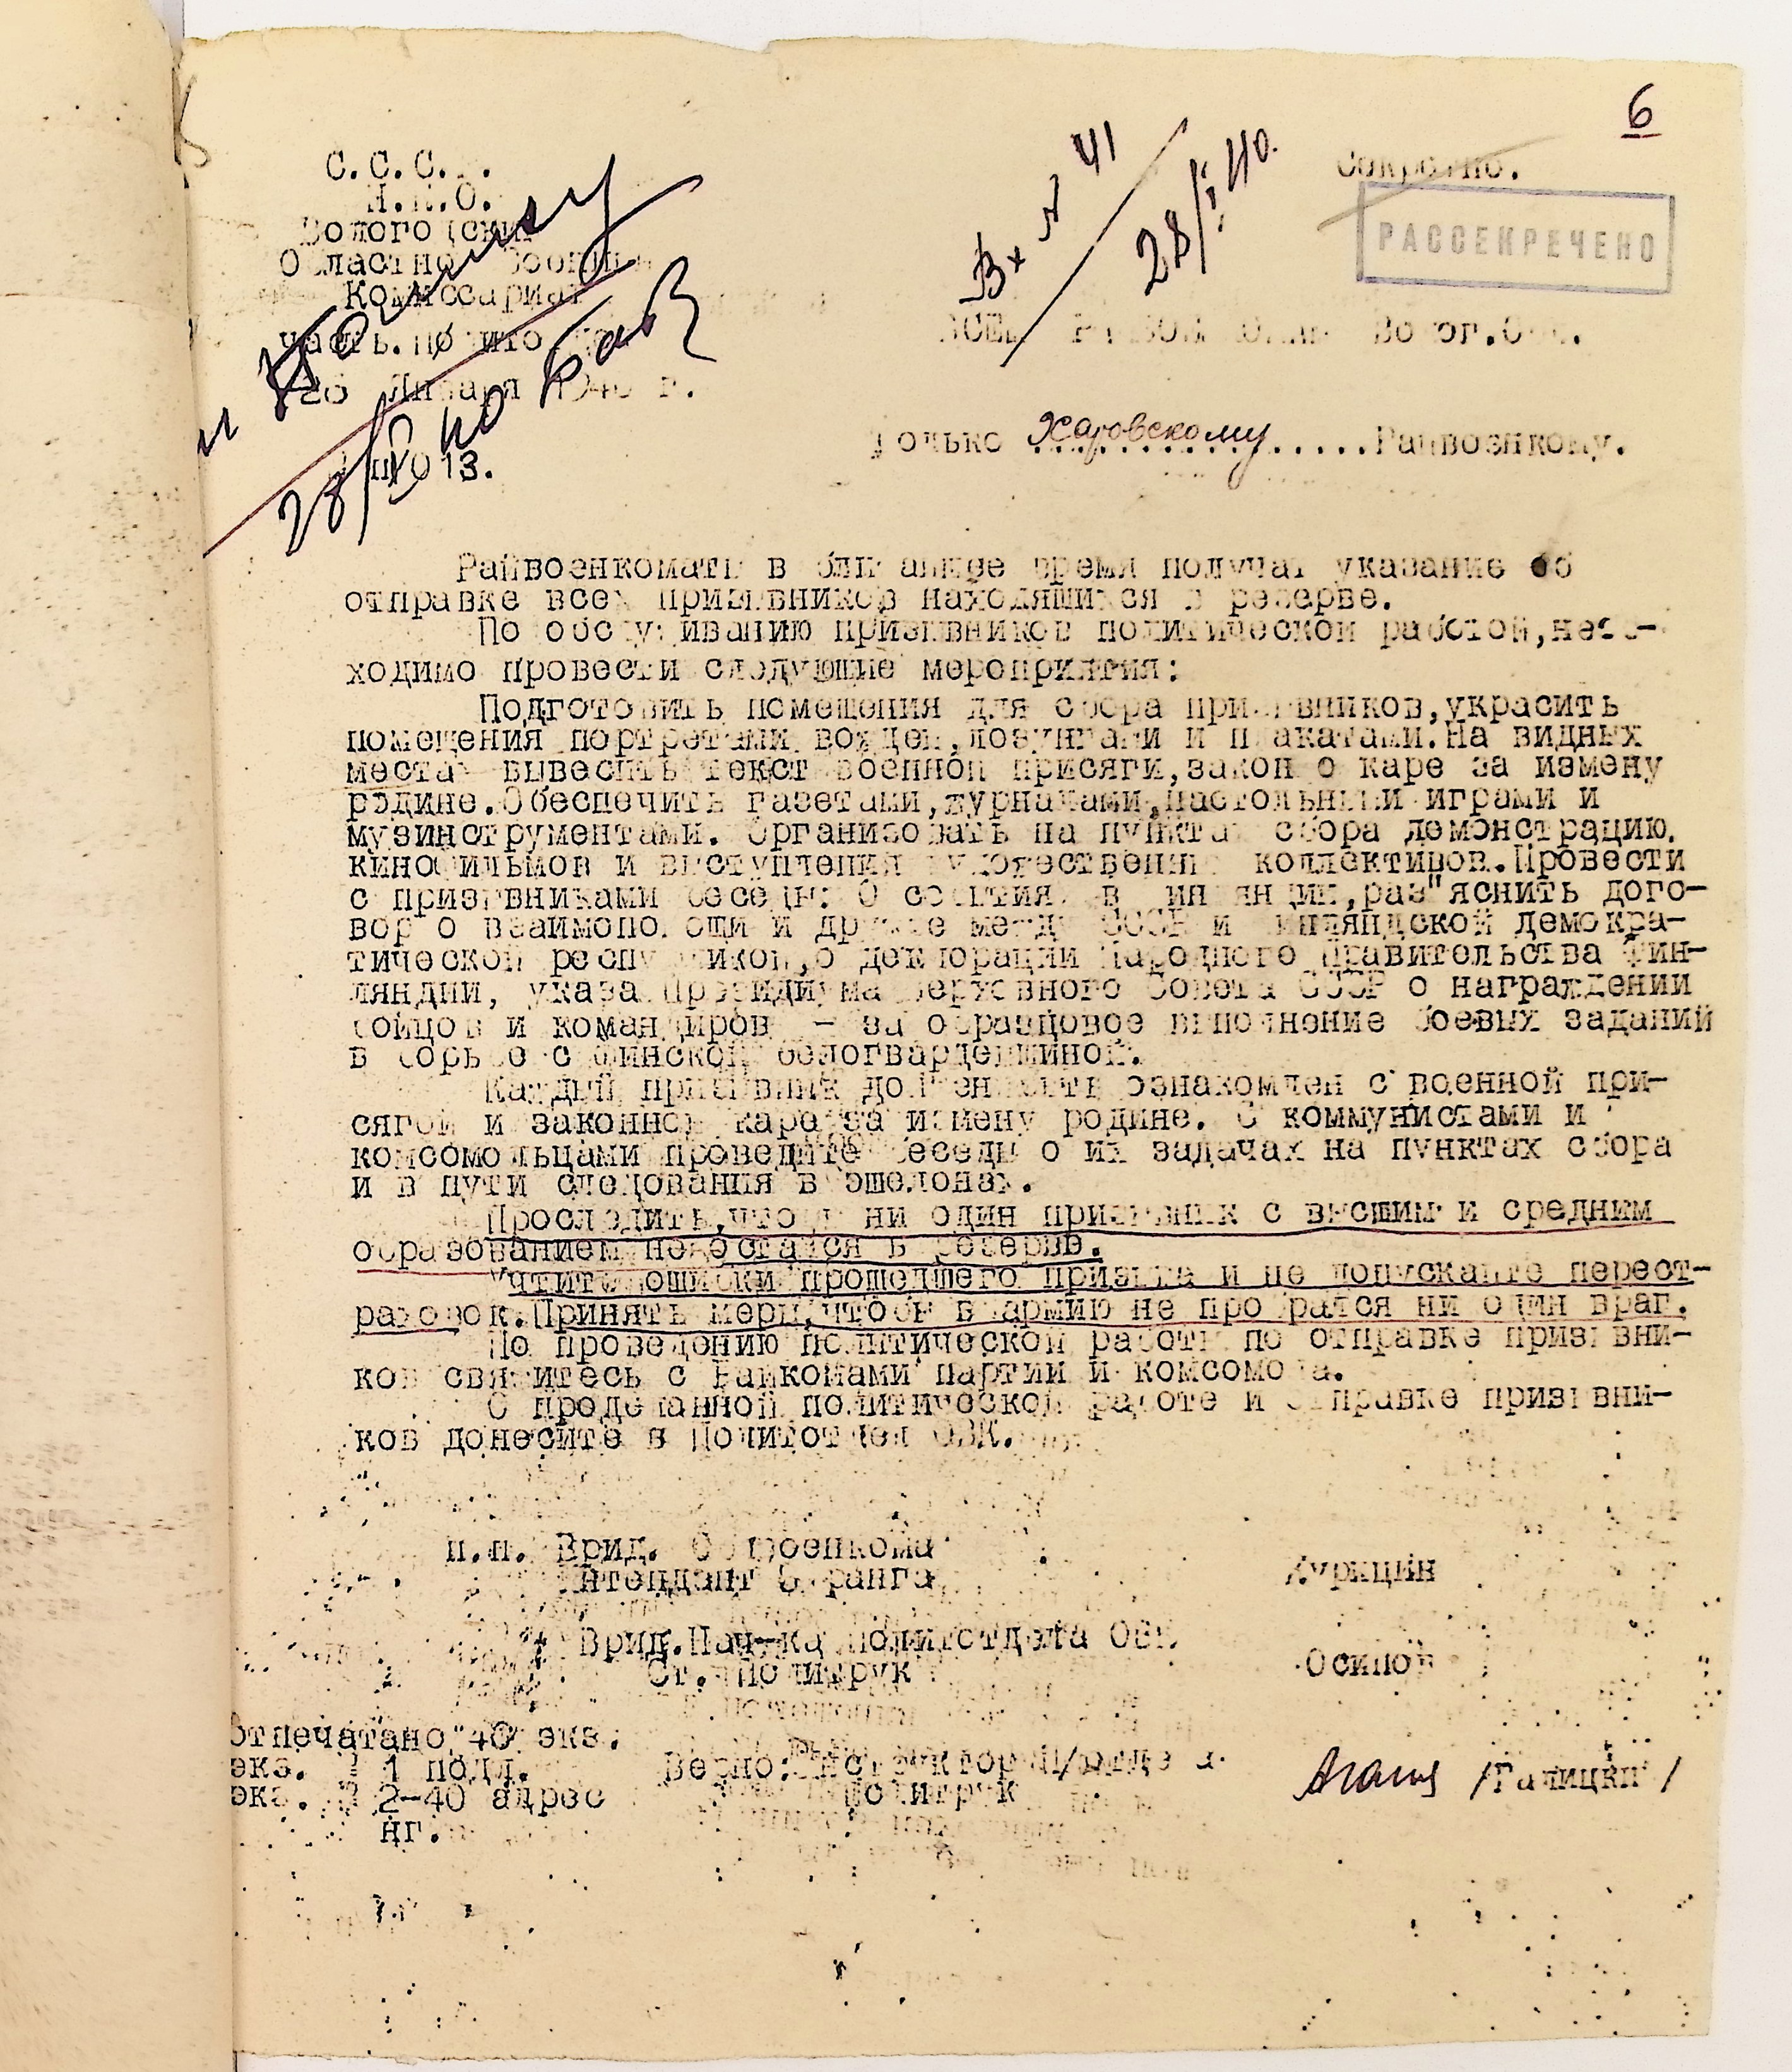 6
С.С.С.
Н.К.О.
Вологодский
Областной Военный
Комиссариат
часть.
Вх № 41
28/I-40.
Секретно.
РАССЕКРЕЧЕНО
ВСЕМ РАЙВОЕНКОМАМ Волог.Обл.
26 Января 1940 г.
Только Харовскому.....Райвоенкому.
28/I 40
13.
Райвоенкоматы в ближайшее время получат указание об
отправке всех призывников находящихся в резерве.
По обслуживанию призывников политической работой,необ-
ходимо провести следующие мероприятия:
Подготовить помещения для сбора призывников,украсить
помещения портретами вождей,лозунгами и плакатами.На видных
местах вывесить текст военной присяги,закон о каре за измену
родине.Обеспечить газетами,журналами,настольными играми и
музинструментами. Организовать на пунктах сбора демонстрацию
кинофильмов и выступления художественных коллективов.Провести
с призывниками беседы: О событиях в Финляндии,раз"яснить дого-
вор о взаимопомощи и дружбе между СССР и Финляндской демокра-
тической республикой,о декларации Народного Правительства Фин-
ляндии, указа Президиума Верховного Совета СССР о награждении
бойцов и командиров - за образцовое выполнение боевых заданий
в борьбе с финской белогвардейщиной.
Каждый призывник должен быть ознакомлен с военной при-
сягой и законной кара за измену родине. С коммунистами и
комсомольцами проведите беседы о их задачах на пунктах сбора
и в пути следования в эшелонах.
Проследить,чтобы ни один призывник с высшим и средним
образованием не остался в резерве.
Учтите ошибки прошедшего призыва и не допускайте перест-
раховок.Принять меры,чтобы в армию не пробрался ни один враг.
По проведению политической работы по отправке призывни-
ков свяжитесь с Райкомами партии и комсомола.
О проделанной политической работе и отправке призывни-
ков донесите в Политотдел ОВК.
п.п. Врид. Облвоенкома
Интендант 3 ранга Курицин
Врид.Нач-ка Политотдела ОВК
Ст. Политрук Осипов
Отпечатано 40 экз.
экз. 1 подл.
Верно: Инструктор П/отдела
экз. 2-40 адрес
Политрук /Галицкий/
нг.